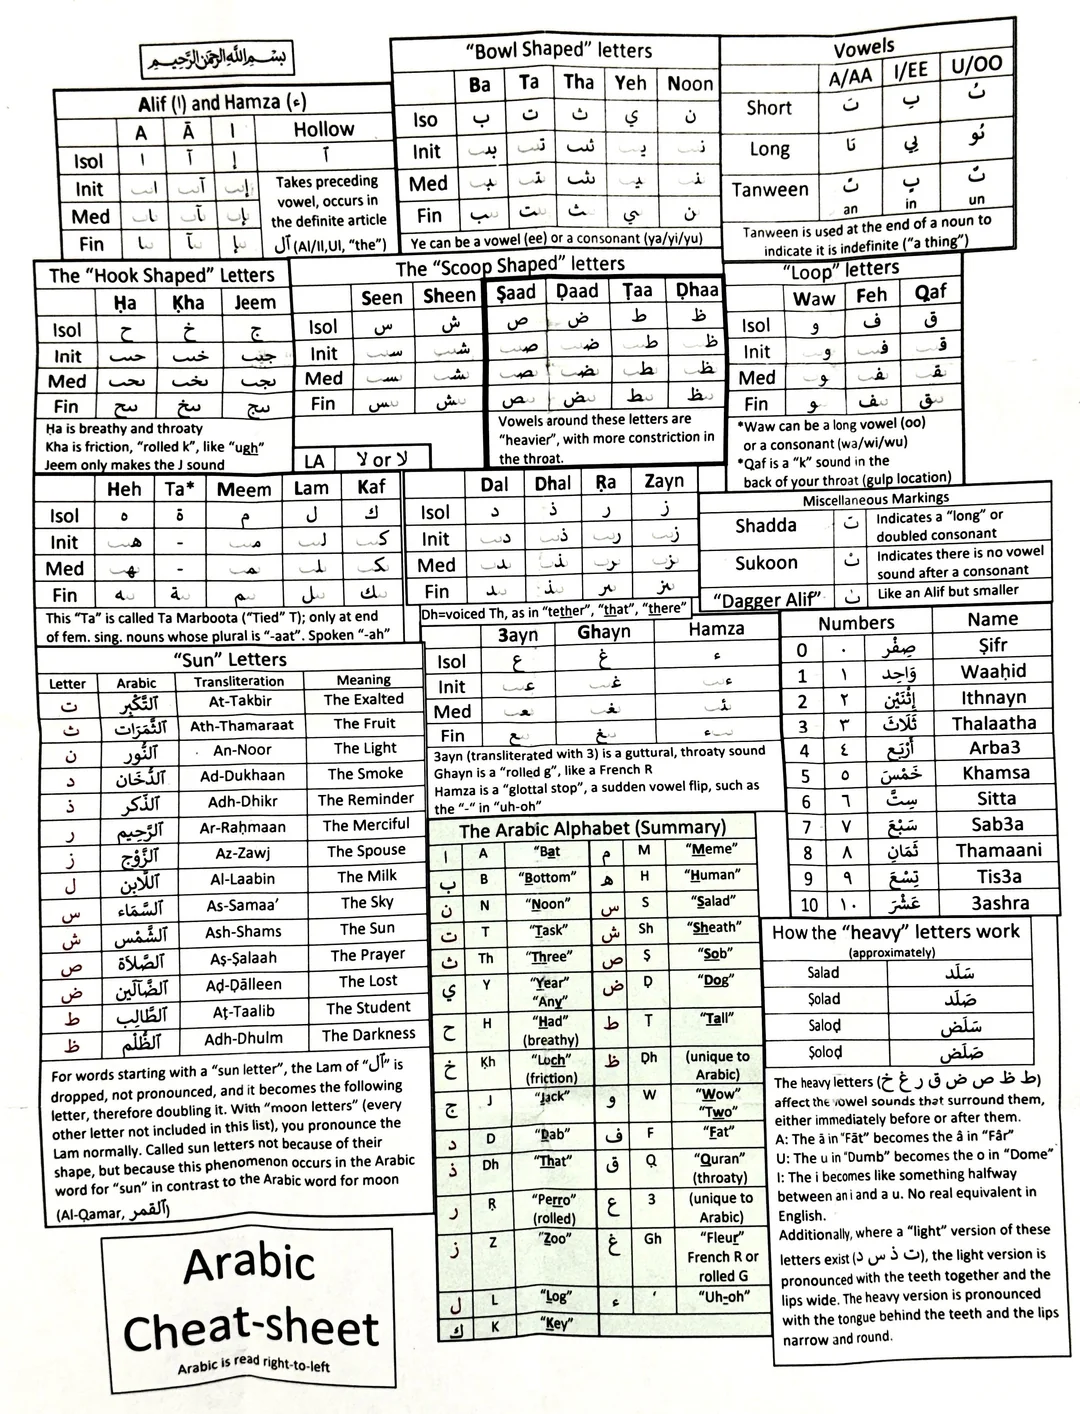 بسم الله الرحمن الرحيم
Alif (ا) and Hamza (ء)
A Ā I Hollow
Isol ا آ إ ٱ
Init اىـ آىـ إىـ
Med ـاىـ ـآىـ ـإىـ
Fin ـا ـآ ـإ
Takes preceding
vowel, occurs in
the definite article
ٱل (Al/Il,Ul, "the")
"Bowl Shaped" letters
Ba Ta Tha Yeh Noon
Iso ب ت ث ي ن
Init بـ تـ ثـ يـ نـ
Med ـبـ ـتـ ـثـ ـيـ ـنـ
Fin ـب ـت ـث ـي ـن
Ye can be a vowel (ee) or a consonant (ya/yi/yu)
Vowels
A/AA I/EE U/OO
Short تَ بِ ثُ
Long تَا بِي نُو
Tanween تً بٍ ثٌ
an in un
Tanween is used at the end of a noun to
indicate it is indefinite ("a thing")
The "Hook Shaped" Letters
Ḥa Ḳha Jeem
Isol ح خ ج
Init حـ خـ جـ
Med ـحـ ـخـ ـجـ
Fin ـح ـخ ـج
Ḥa is breathy and throaty
Kha is friction, "rolled k", like "ugh"
Jeem only makes the J sound
The "Scoop Shaped" letters
Seen Sheen Ṣaad Ḍaad Ṭaa Ḍhaa
Isol س ش ص ض ط ظ
Init سـ شـ صـ ضـ طـ ظـ
Med ـسـ ـشـ ـصـ ـضـ ـطـ ـظـ
Fin ـس ـش ـص ـض ـط ـظ
Vowels around these letters are
"heavier", with more constriction in
the throat.
LA لا or ﻻ
"Loop" letters
Waw Feh Qaf
Isol و ف ق
Init و فـ قـ
Med ـو ـفـ ـقـ
Fin ـو ـف ـق
*Waw can be a long vowel (oo)
or a consonant (wa/wi/wu)
*Qaf is a "k" sound in the
back of your throat (gulp location)
Heh Ta* Meem Lam Kaf
Isol ه ة م ل ك
Init هـ - مـ لـ كـ
Med ـهـ - ـمـ ـلـ ـكـ
Fin ـه ـة ـم ـل ـك
This "Ta" is called Ta Marboota ("Tied" T); only at end
of fem. sing. nouns whose plural is "-aat". Spoken "-ah"
Dal Dhal Ṛa Zayn
Isol د ذ ر ز
Init د ذ ر ز
Med ـد ـذ ـر ـز
Fin ـد ـذ ـر ـز
Dh=voiced Th, as in "tether", "that", "there"
Miscellaneous Markings
Shadda تّ Indicates a "long" or
doubled consonant
Sukoon تْ Indicates there is no vowel
sound after a consonant
"Dagger Alif" تٰ Like an Alif but smaller
3ayn Ghayn Hamza
Isol ع غ ء
Init عـ غـ ء
Med ـعـ ـغـ ـئـ
Fin ـع ـغ ء
3ayn (transliterated with 3) is a guttural, throaty sound
Ghayn is a "rolled g", like a French R
Hamza is a "glottal stop", a sudden vowel flip, such as
the "-" in "uh-oh"
Numbers Name
0 ٠ صِفْر Ṣifr
1 ١ وَاحِد Waaḥid
2 ٢ إِثْنَيْن Ithnayn
3 ٣ ثَلَاثَ Thalaatha
4 ٤ أَرْبَع Arba3
5 ٥ خَمْسَ Khamsa
6 ٦ سِتَّ Sitta
7 ٧ سَبْعَ Sab3a
8 ٨ ثَمَانِ Thamaani
9 ٩ تِسْعَ Tis3a
10 ١٠ عَشْرَ 3ashra
"Sun" Letters
Letter Arabic Transliteration Meaning
ت ٱلتَّكْبِر At-Takbir The Exalted
ث ٱلثَّمَرَات Ath-Thamaraat The Fruit
ن ٱلنُّور An-Noor The Light
د ٱلدُّخَان Ad-Dukhaan The Smoke
ذ ٱلذِّكر Adh-Dhikr The Reminder
ر ٱلرَّحِيم Ar-Raḥmaan The Merciful
ز ٱلزَّوْج Az-Zawj The Spouse
ل ٱللَّابِن Al-Laabin The Milk
س ٱلسَّمَاء As-Samaa' The Sky
ش ٱلشَّمْس Ash-Shams The Sun
ص ٱلصَّلَاة Aṣ-Ṣalaah The Prayer
ض ٱلضَّآلِّين Aḍ-Ḍālleen The Lost
ط ٱلطَّالِب Aṭ-Taalib The Student
ظ ٱلظُّلْم Adh-Dhulm The Darkness
For words starting with a "sun letter", the Lam of "ٱل" is
dropped, not pronounced, and it becomes the following
letter, therefore doubling it. With "moon letters" (every
other letter not included in this list), you pronounce the
Lam normally. Called sun letters not because of their
shape, but because this phenomenon occurs in the Arabic
word for "sun" in contrast to the Arabic word for moon
(Al-Qamar, ٱلقمر)
The Arabic Alphabet (Summary)
ا A "Bat م M "Meme"
ب B "Bottom" ه H "Human"
ن N "Noon" س S "Salad"
ت T "Task" ش Sh "Sheath"
ث Th "Three" ص Ṣ "Sob"
ي Y "Year" ض Ḍ "Dog"
"Any"
ح H "Had" ط T "Tall"
(breathy)
خ Ḳh "Loch" ظ Ḍh (unique to
(friction) Arabic)
ج J "Jack" و W "Wow"
"Two"
د D "Dab" ف F "Fat"
ذ Dh "That" ق Q "Quran"
(throaty)
ر Ṛ "Perro" ع 3 (unique to
(rolled) Arabic)
ز Z "Zoo" غ Gh "Fleur"
French R or
rolled G
ل L "Log" ء ' "Uh-oh"
ك K "Key"
How the "heavy" letters work
(approximately)
Salad سَلَد
Ṣolad صَلَد
Saloḍ سَلَض
Ṣoloḍ صَلَض
The heavy letters (ط ظ ص ض ق ر غ خ)
affect the vowel sounds that surround them,
either immediately before or after them.
A: The ā in "Fāt" becomes the â in "Fâr"
U: The u in "Dumb" becomes the o in "Dome"
I: The i becomes like something halfway
between an i and a u. No real equivalent in
English.
Additionally, where a "light" version of these
letters exist (ت ذ س د), the light version is
pronounced with the teeth together and the
lips wide. The heavy version is pronounced
with the tongue behind the teeth and the lips
narrow and round.
Arabic
Cheat-sheet
Arabic is read right-to-left